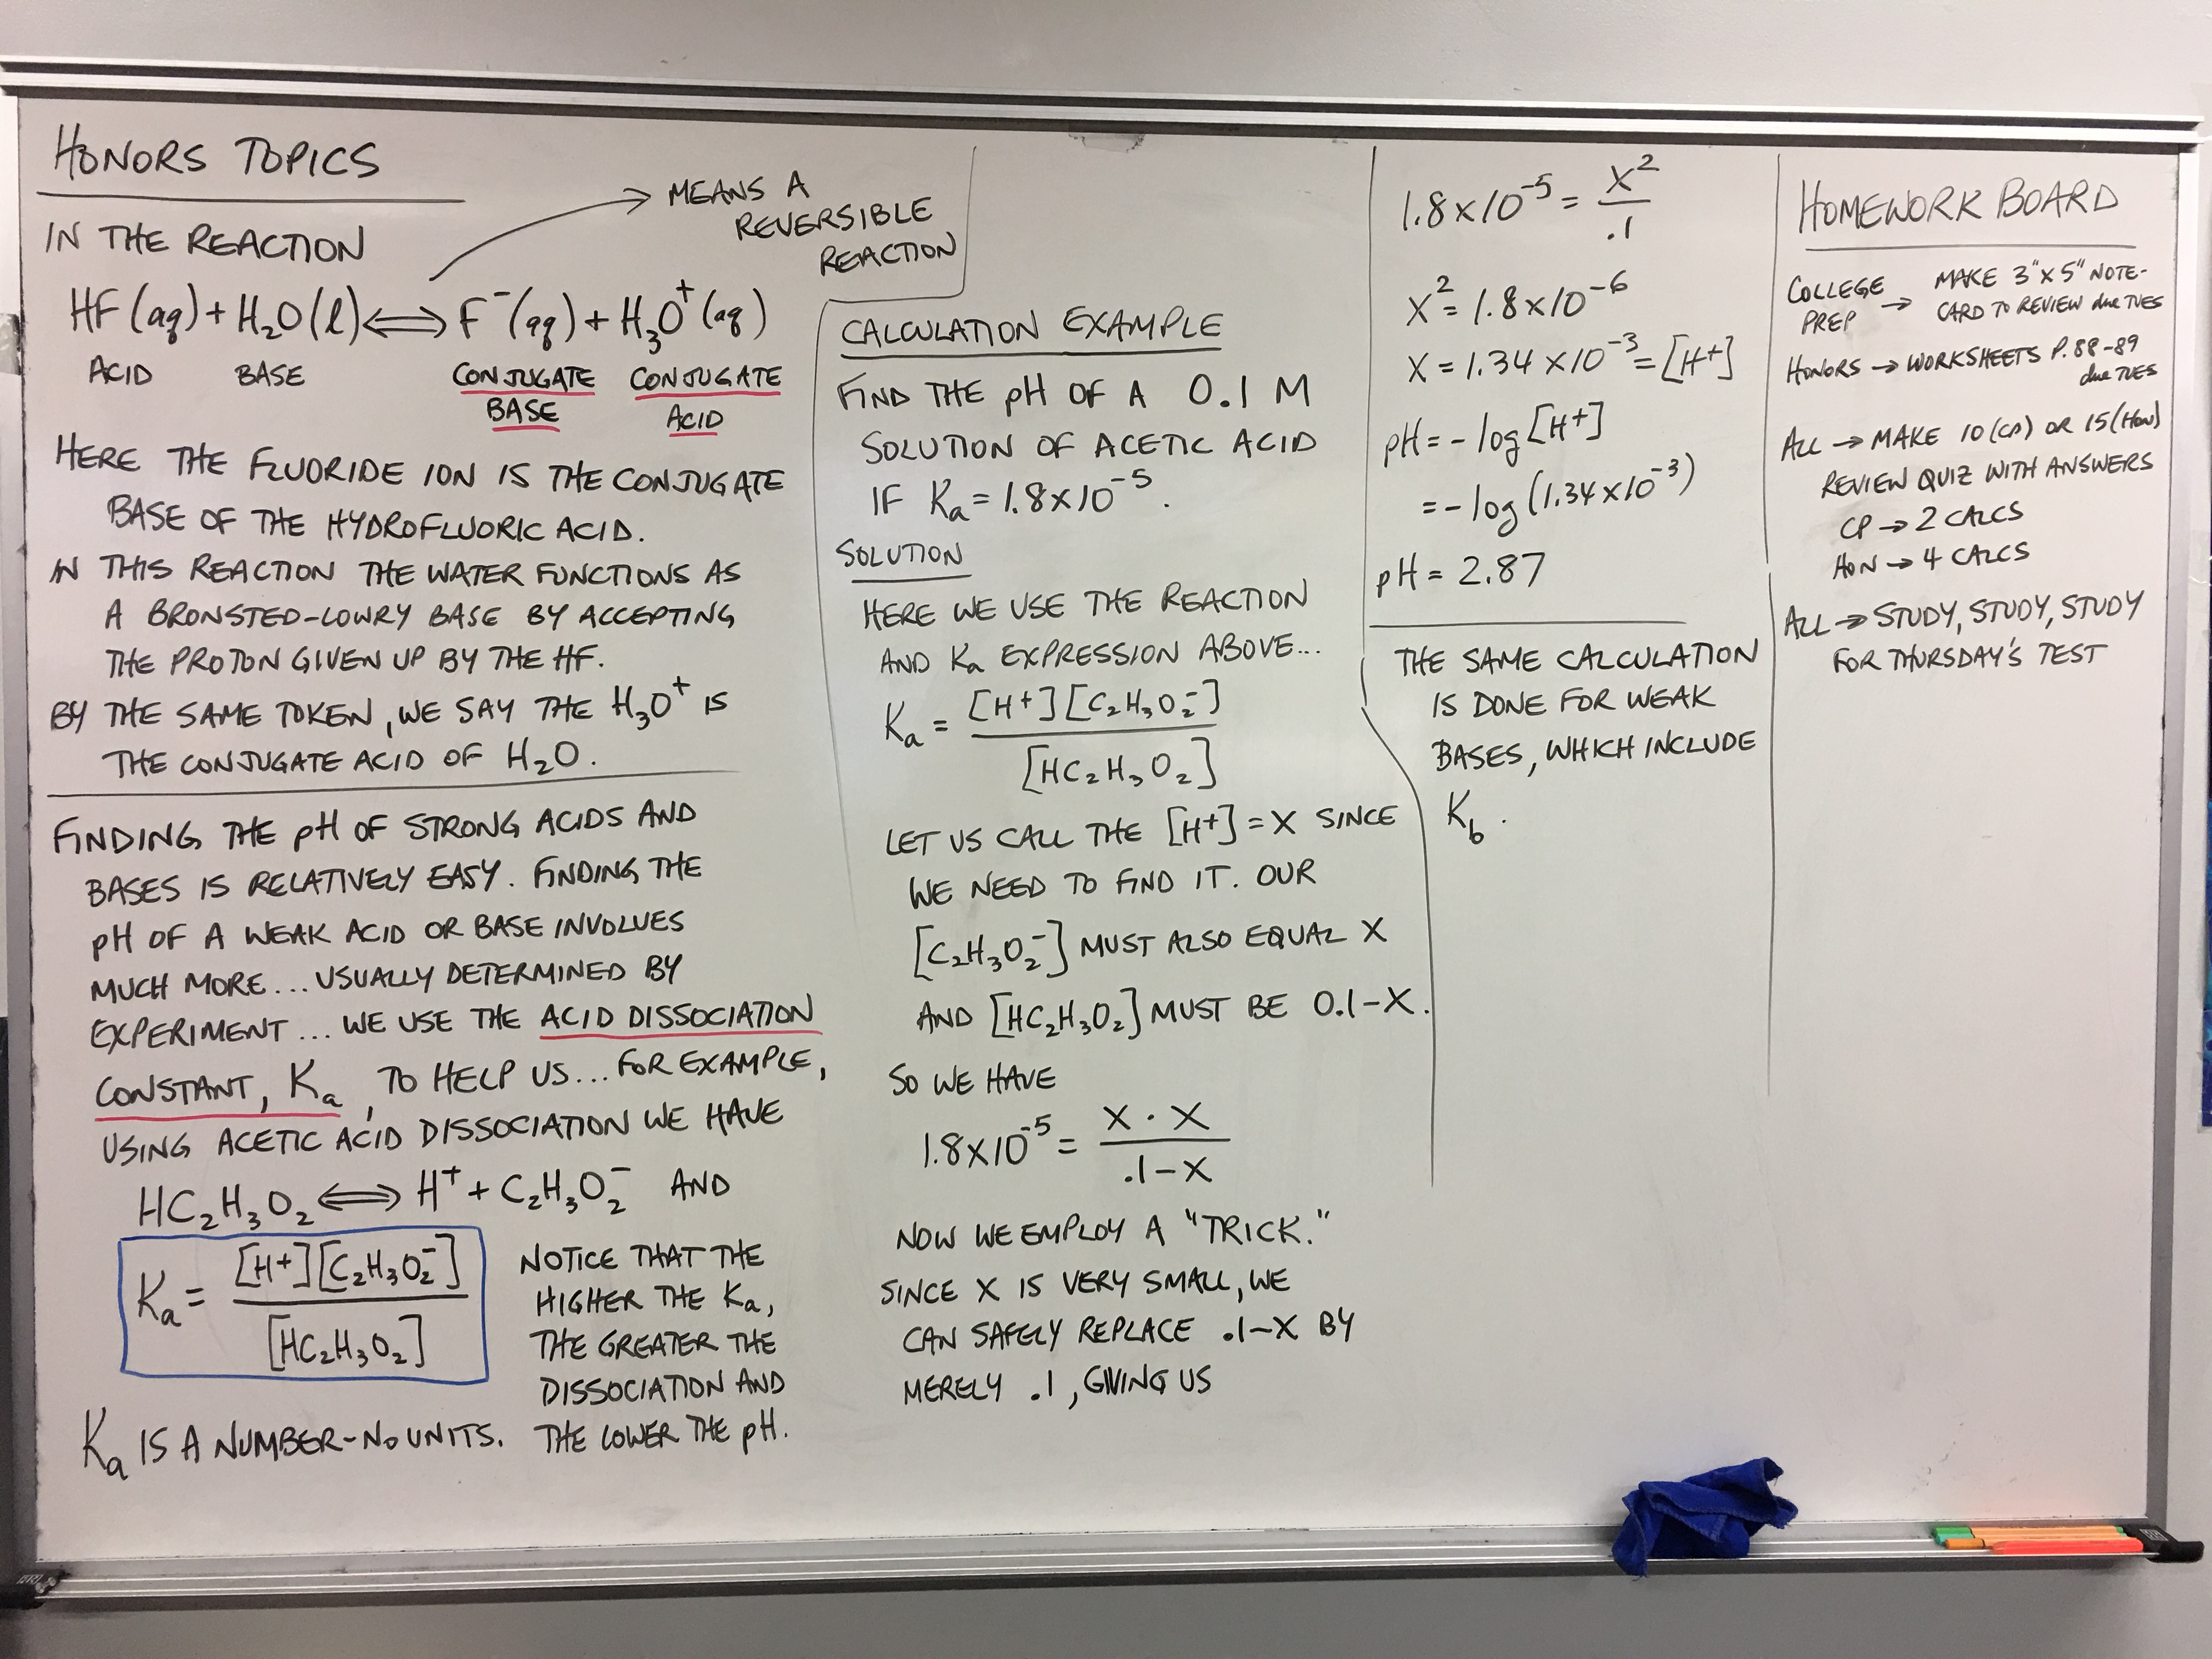 HONORS TOPICS
IN THE REACTION
MEANS A
REVERSIBLE
REACTION
HF(aq) + H₂O(l) ⟺ F⁻(aq) + H₃O⁺(aq)
ACID BASE CONJUGATE CONJUGATE
BASE ACID
HERE THE FLUORIDE ION IS THE CONJUGATE
BASE OF THE HYDROFLUORIC ACID.
IN THIS REACTION THE WATER FUNCTIONS AS
A BRONSTED-LOWRY BASE BY ACCEPTING
THE PROTON GIVEN UP BY THE HF.
BY THE SAME TOKEN, WE SAY THE H₃O⁺ IS
THE CONJUGATE ACID OF H₂O.
FINDING THE pH OF STRONG ACIDS AND
BASES IS RELATIVELY EASY. FINDING THE
pH OF A WEAK ACID OR BASE INVOLVES
MUCH MORE... USUALLY DETERMINED BY
EXPERIMENT... WE USE THE ACID DISSOCIATION
CONSTANT, Kₐ, TO HELP US... FOR EXAMPLE,
USING ACETIC ACID DISSOCIATION WE HAVE
HC₂H₃O₂ ⟺ H⁺ + C₂H₃O₂⁻ AND
Kₐ = [H⁺][C₂H₃O₂⁻]
[HC₂H₃O₂]
NOTICE THAT THE
HIGHER THE Kₐ,
THE GREATER THE
DISSOCIATION AND
THE LOWER THE pH.
Kₐ IS A NUMBER-NO UNITS.
CALCULATION EXAMPLE
FIND THE pH OF A 0.1 M
SOLUTION OF ACETIC ACID
IF Kₐ = 1.8x10⁻⁵.
SOLUTION
HERE WE USE THE REACTION
AND Kₐ EXPRESSION ABOVE...
Kₐ = [H⁺][C₂H₃O₂⁻]
[HC₂H₃O₂]
LET US CALL THE [H⁺] = X SINCE
WE NEED TO FIND IT. OUR
[C₂H₃O₂⁻] MUST ALSO EQUAL X
AND [HC₂H₃O₂] MUST BE 0.1-X.
SO WE HAVE
1.8x10⁻⁵ = X · X
.1-X
NOW WE EMPLOY A "TRICK."
SINCE X IS VERY SMALL, WE
CAN SAFELY REPLACE .1-X BY
MERELY .1, GIVING US
1.8x10⁻⁵ = X²
.1
X² = 1.8x10⁻⁶
X = 1.34 x10⁻³ = [H⁺]
pH = -log[H⁺]
= -log(1.34x10⁻³)
pH = 2.87
THE SAME CALCULATION
IS DONE FOR WEAK
BASES, WHICH INCLUDE
K_b.
HOMEWORK BOARD
COLLEGE PREP → MAKE 3"x5" NOTE-
CARD TO REVIEW due TUES
HONORS → WORKSHEETS P.88-89
due TUES
ALL → MAKE 10(CP) OR 15(HON)
REVIEW QUIZ WITH ANSWERS
CP → 2 CALCS
HON → 4 CALCS
ALL → STUDY, STUDY, STUDY
FOR THURSDAY'S TEST